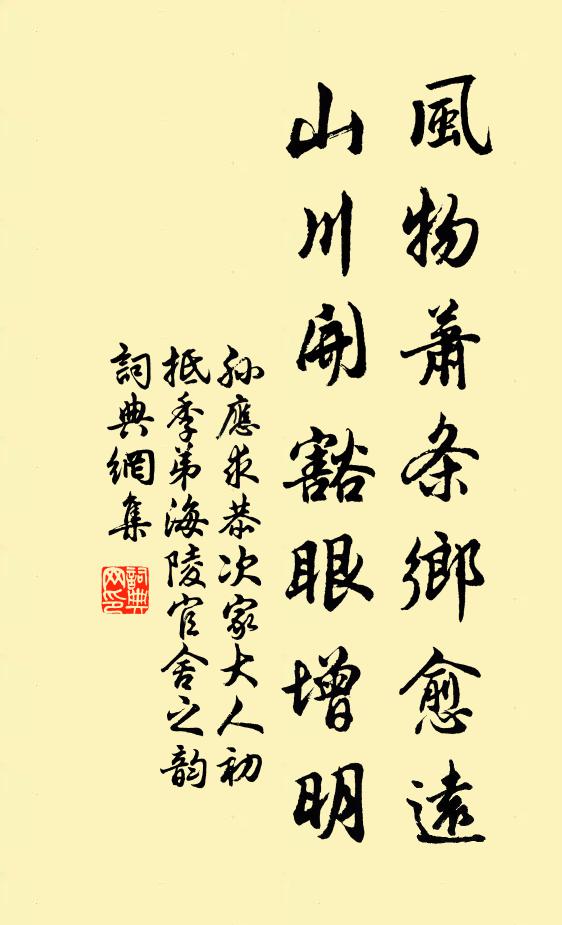 風物蕭条鄉愈遠
山川開豁眼增明
孙應求恭次家大人初
抵季弟海陵官舍之韵
詞典網集
詞典
网印